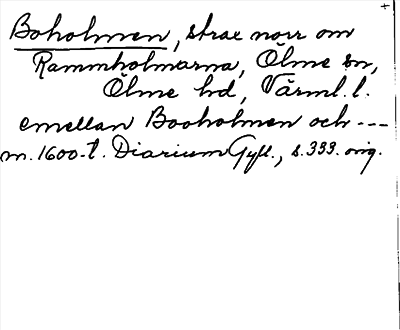 Boholmen, strax norr om
Rammholmarna, Ölme sn,
Ölme hd, Värml. l.
emellan Booholmen och ---
m. 1600-t. Diarium Gyll., s. 333. orig.